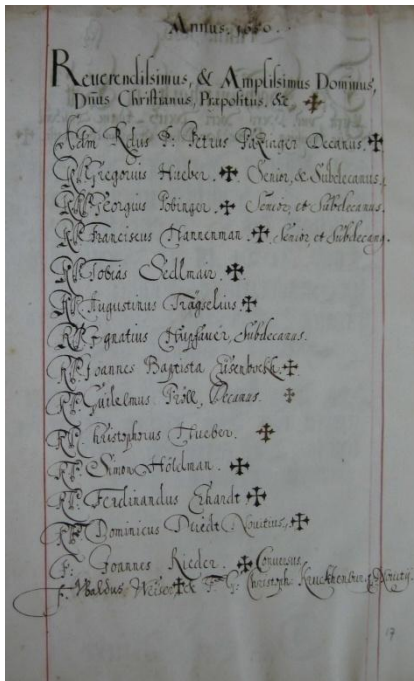 Annus. 1680.
Reuerendissimus, & Amplissimus Dominus,
Dñus Christianus, Præpositus, &c. ✠
Adm Rdus P: Petrus Päzinger Decanus. ✠
RP. Gregorius Hueber. ✠ Senior, & Subdecanus.
RP. Georgius Pobinger. ✠ Senior, et Subdecanus.
RP. Franciscus Hannenman. ✠ Senior, et Subdecanus.
RP. Tobias Sedlmair. ✠
RP. Augustinus Trägselius. ✠
RP. Ignatius Hupfauer, Subdecanus.
RP. Joannes Baptista Eisenboekh. ✠
RP. Guilelmus Pröll, Decanus. ✠
RP. Christophorus Hueber. ✠
RP. Simon Höldman. ✠
RP. Ferdinandus Ehardt ✠
RP. Dominicus Novitius, ✠
F: Joannes Rieder. ✠ Conversus
F. Ubaldus ✠ & F. Christoph